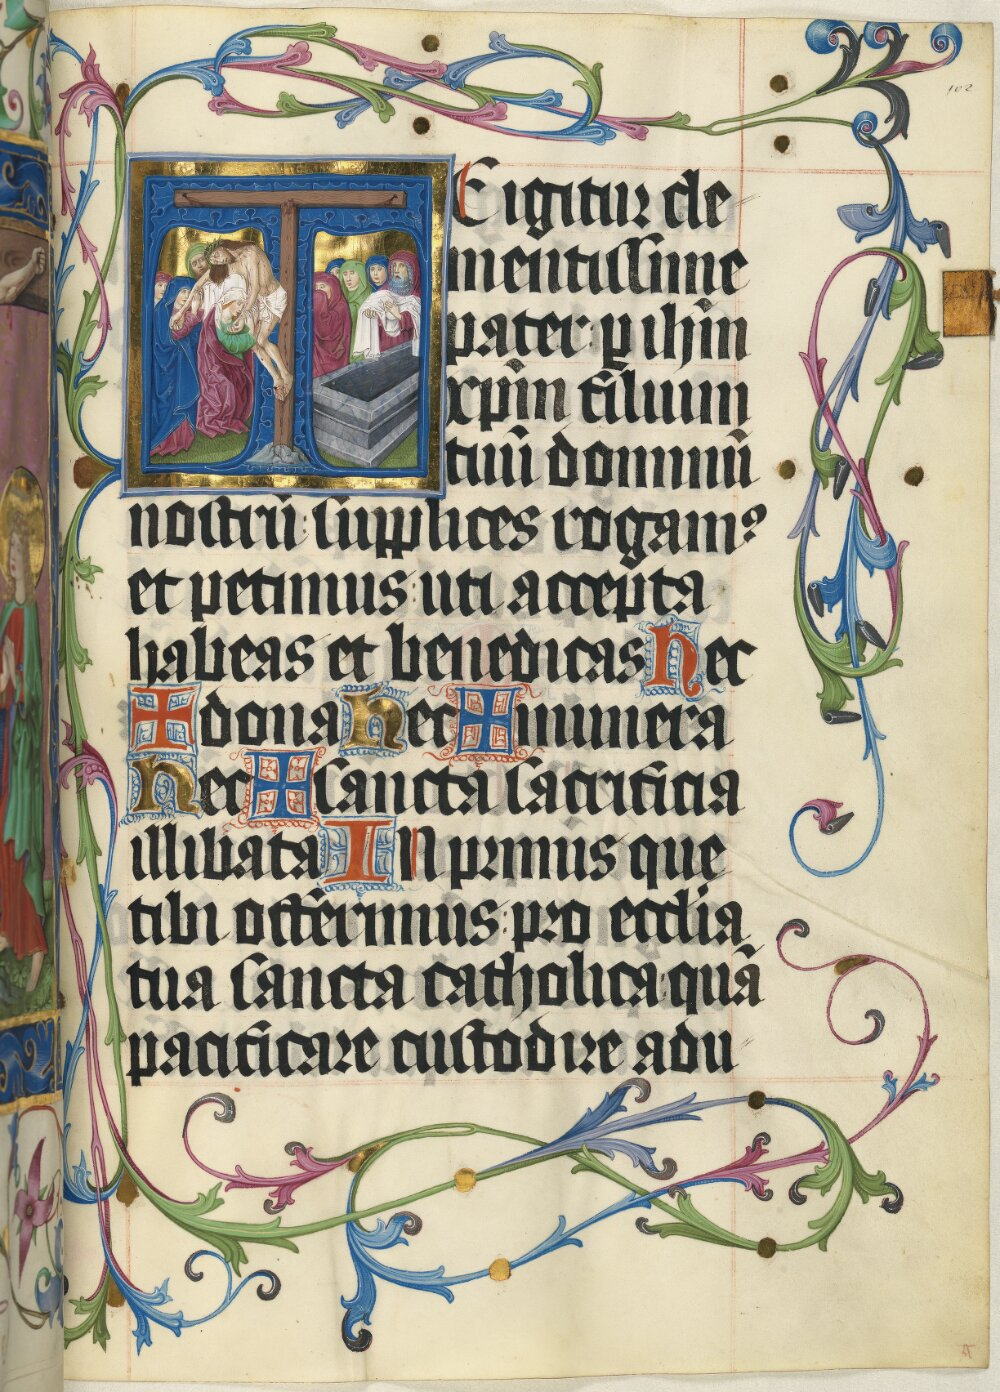 102
TE igitur cle
mentissime
pater: p ihm̄
xpm̄ filium
tuū dominū
nostrū: supplices rogamꝰ
et petimus: uti accepta
habeas et benedicas Hec
✠ dona Hec ✠ munera
Hec ✠ sancta sacrificia
illibata In primis que
tibi offerimus: pro ecclia
tua sancta catholica: quā
pacificare custodire adu